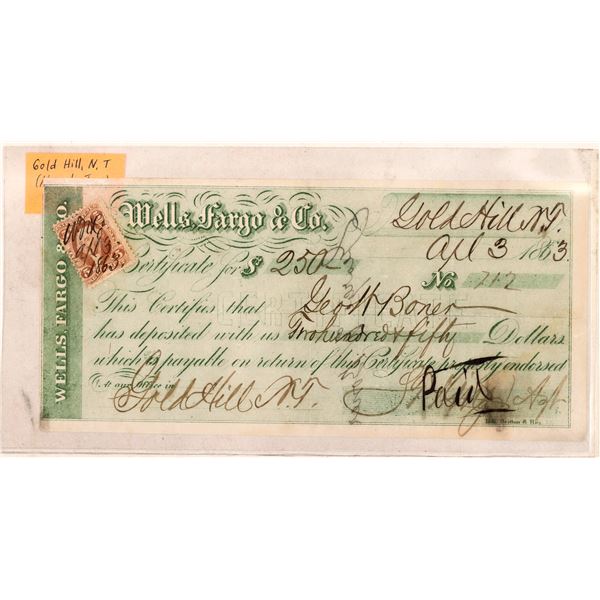 Gold Hill, N, T
WELLS, FARGO & CO.
Wells, Fargo & Co.
Gold Hill N.T.
Apl 3 1863.
Certificate for $ 250
No. 717
This Certifies that Geo H Boner
has deposited with us Two hundred & fifty Dollars
which is payable on return of this Certificate properly endorsed
At our Office in Gold Hill N.T.
Paid
Agt